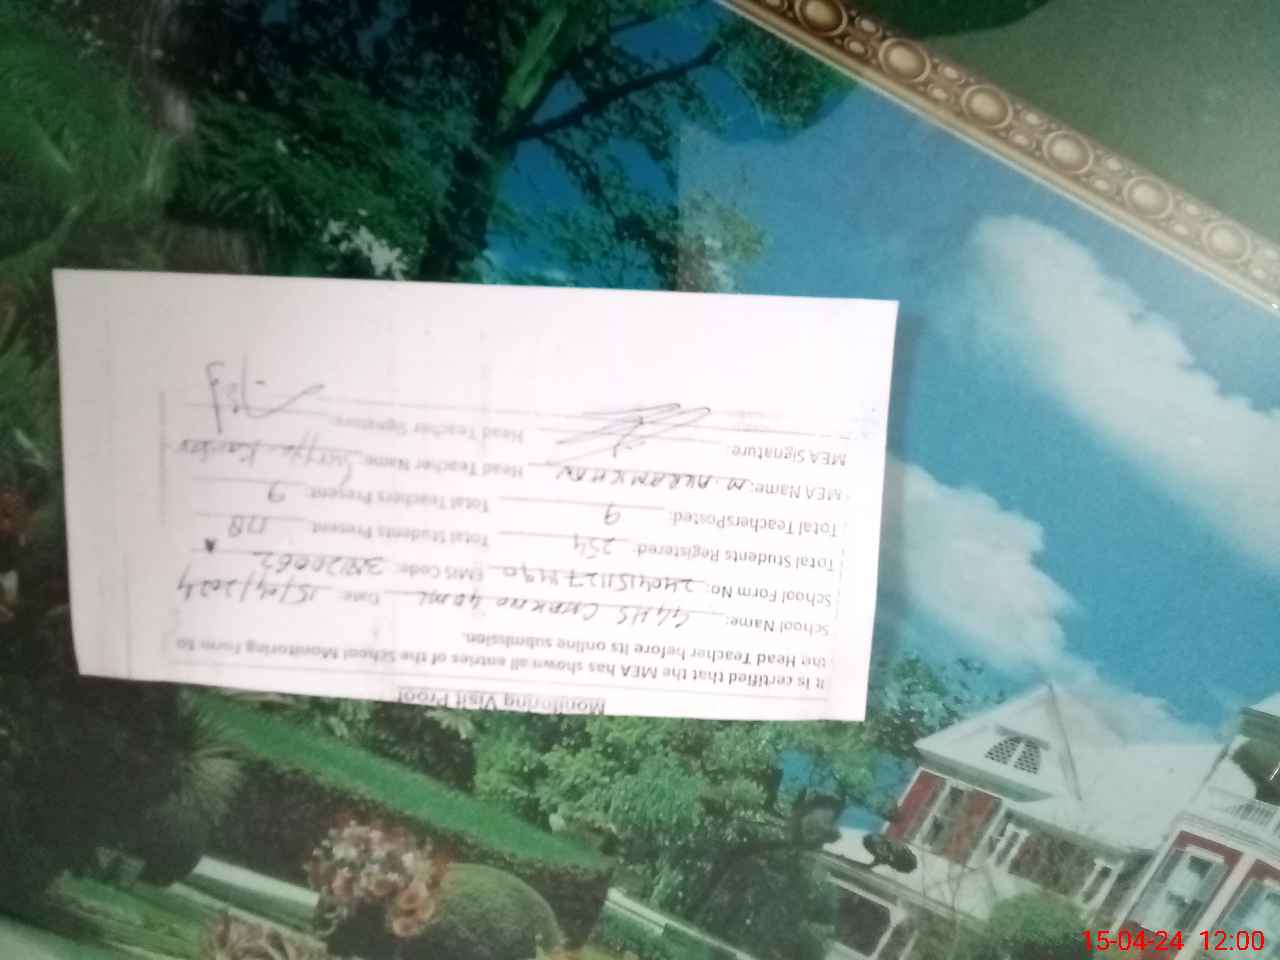 Monitoring Visit Proof
It is certified that the MEA has shown all entries of the School Monitoring Form to
the Head Teacher before its online submission.
School Name: GGHS CHAK NO 40 ML Date: 15/04/2024
School Form No: EMIS Code:
Total Students Registered: 254 Total Students Present: 178
Total TeachersPosted: 9 Total Teachers Present: 9
MEA Name: M. AKRAM KHAN Head Teacher Name:
MEA Signature: Head Teacher Signature:
15-04-24 12:00